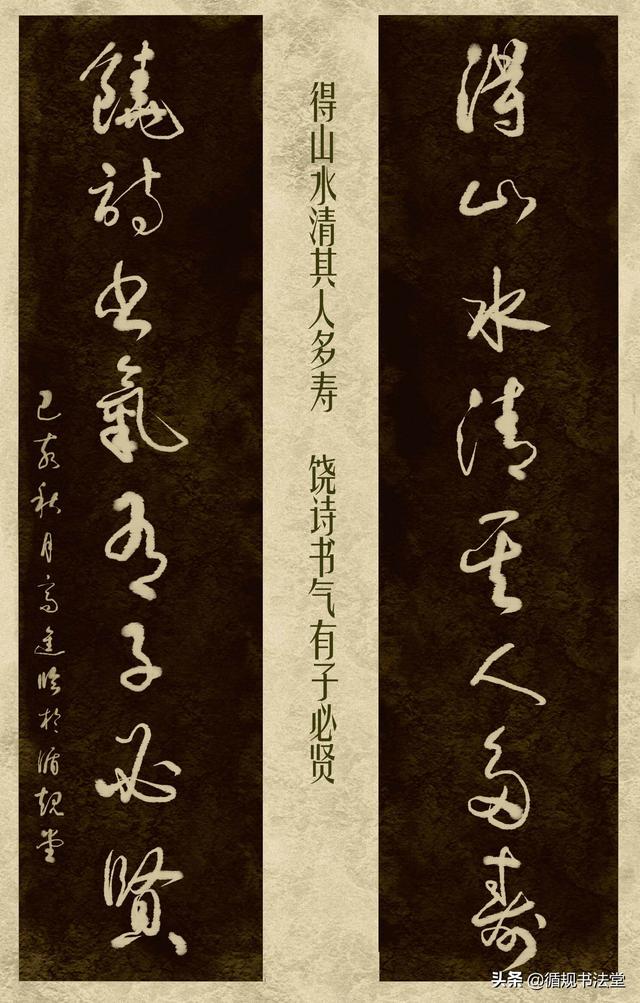 得山水清其人多壽
得山水清其人多寿 饶诗书气有子必贤
饒詩書氣有子必賢
己亥秋月高進临於循規堂
头条 @循规书法堂